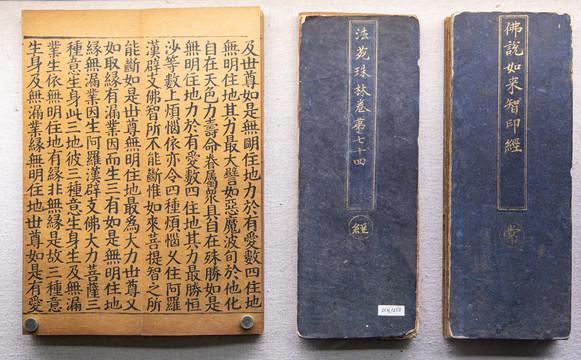 及世尊如是無明住地力於有愛數四住地
無明住地其力最大譬如惡魔波旬於他化
自在天色力壽命眷屬衆具自在殊勝如是
無明住地力於有愛數四住地其力最勝恒
沙等數上煩惱依亦令四種煩惱久住阿羅
漢辟支佛智所不能斷惟如來菩提智之所
能斷如是世尊無明住地最為大力世尊又
如取緣有漏業因而生三有如是無明住地
緣無漏業因生阿羅漢辟支佛大力菩薩三
種意生身此三地彼三種意生身生及無漏
業生依無明住地有緣非無緣是故三種意
生身及無漏業緣無明住地世尊如是有愛
法苑珠林卷第七十四
經
佛說如來智印經
常